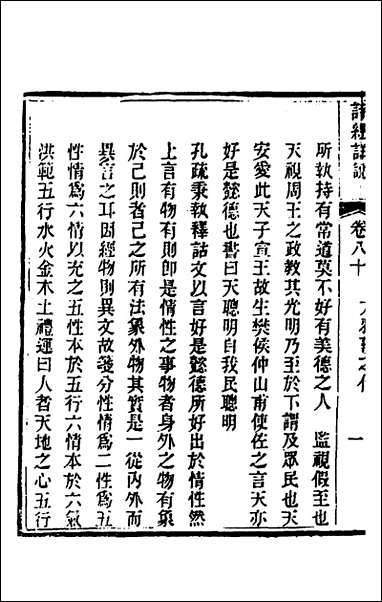 詩經詳說
卷八十
一
所執持有常道莫不好有美德之人　監視假至也
天視周王之政教其光明乃至於下謂及眾民也天
安愛此天子宣王故生樊侯仲山甫使佐之言天亦
好是懿德也書曰天聰明自我民聰明
孔疏秉執釋詁文以言好是懿德所好出於情性然
上言有物有則即是情性之事物者身外之物有象
於己則者己之所有法象外物其實是一從內外而
異言之耳因經物則異文故箋分性情為二性為五
性情爲六情以充之五性本於五行六情本於六氣
洪範五行水火金木土禮運曰人者天地之心五行